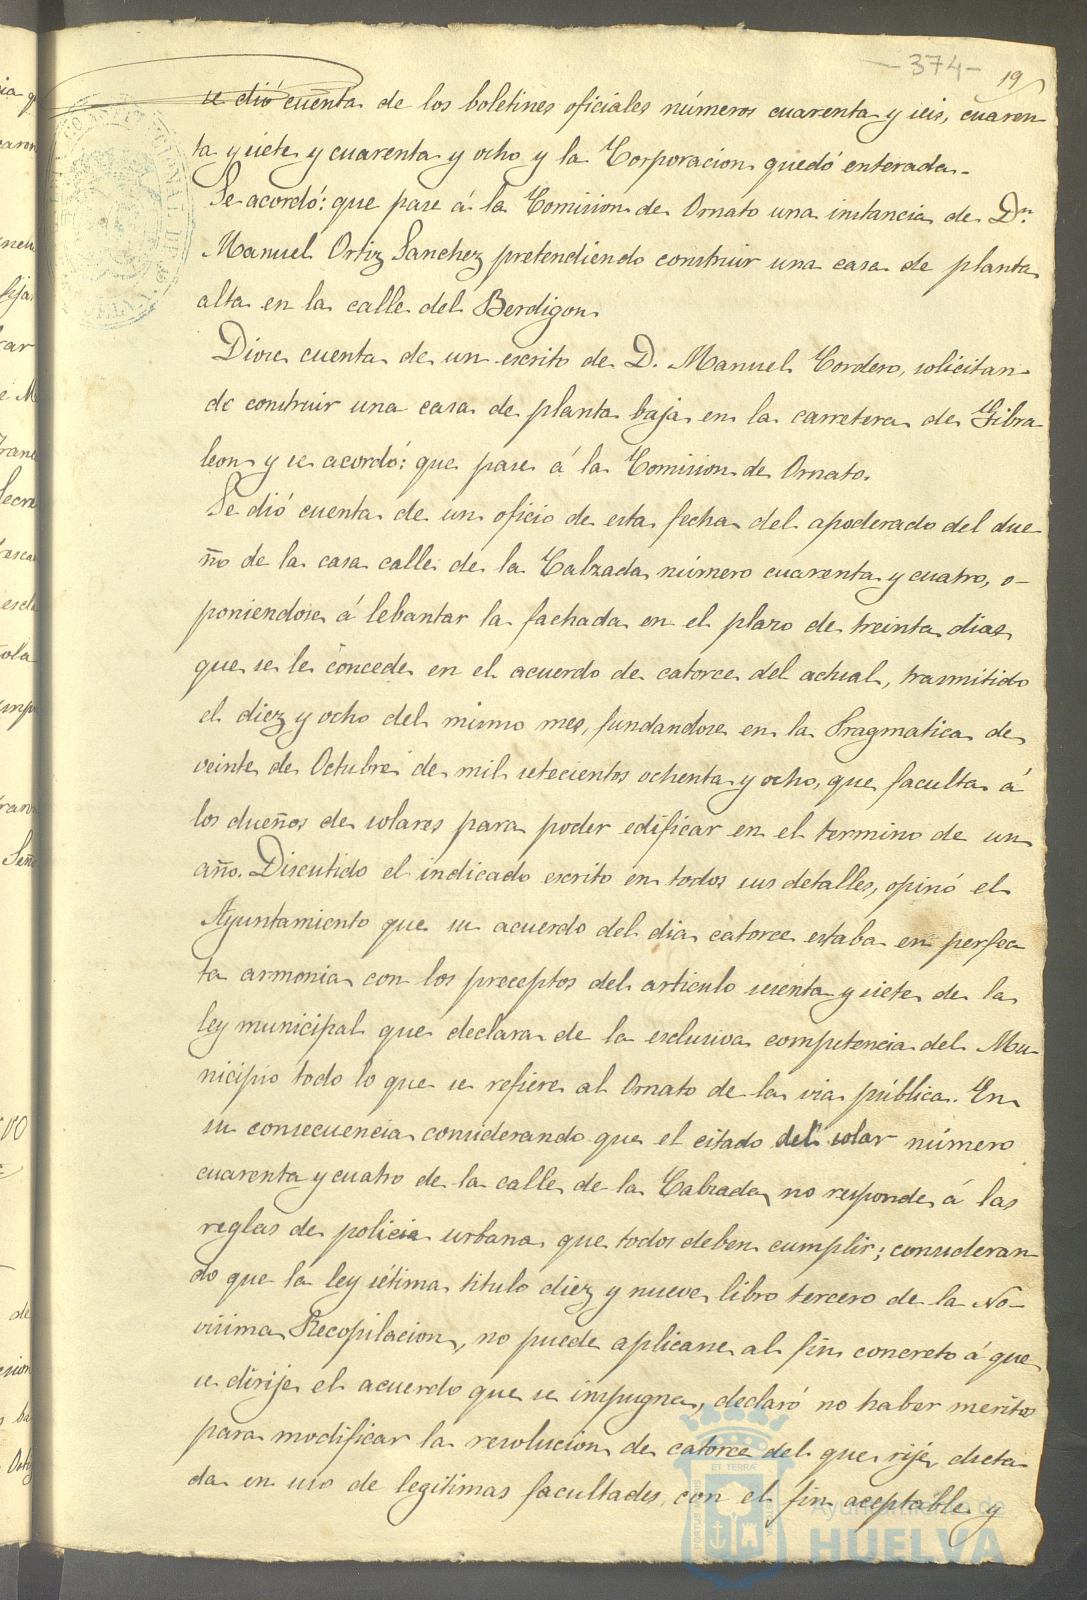 -374-
19
se dió cuenta de los boletines oficiales números cuarenta y seis, cuaren
ta y siete y cuarenta y ocho y la Corporacion quedó enterada.
Se acordó: que pase á la Comision de Ornato una instancia de Dn.
Manuel Ortiz Sanchez pretendiendo construir una casa de planta
alta en la calle del Berdigon.
Diose cuenta de un escrito de D. Manuel Cordero, solicitan-
do construir una casa de planta baja en la carretera de Gibra
leon y se acordó: que pase á la Comision de Ornato.
Se dió cuenta de un oficio de esta fecha del apoderado del due
ño de la casa calle de la Calzada número cuarenta y cuatro, o-
poniendose á lebantar la fachada en el plazo de treinta dias
que se le concede en el acuerdo de catorce del actual, trasmitido
el diez y ocho del mismo mes, fundandose en la Pragmatica de
veinte de Octubre de mil setecientos ochenta y ocho, que faculta á
los dueños de solares para poder edificar en el termino de un
año. Discutido el indicado escrito en todos sus detalles, opinó el
Ayuntamiento que su acuerdo del dia catorce estaba en perfec
ta armonia con los preceptos del articulo sesenta y siete de la
ley municipal que declara de la esclusiva competencia del Mu-
nicipio todo lo que se refiere al Ornato de la via pública. En
su consecuencia considerando que el citado del solar número
cuarenta y cuatro de la calle de la Calzada, no responde á las
reglas de policia urbana que todos deben cumplir; consideran
do que la ley sétima titulo diez y nueve libro tercero de la No-
visima Recopilacion, no puede aplicarse al fin concreto á que
se dirije el acuerdo que se impugna, declaró no haber meritos
para modificar la resolucion de catorce del que rije, dicta-
da en uso de legitimas facultades, con el fin aceptable y
ET TERRAE
Ayuntamiento de
HUELVA